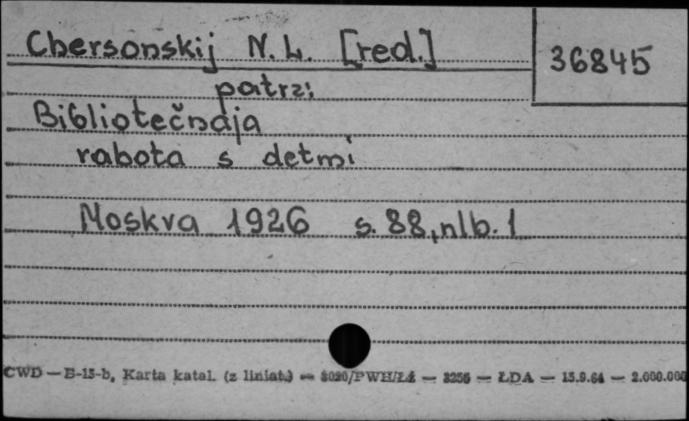 Chersonskij N. L. [red.]
36845
patrz:
Bibliotečnaja
rabota s detmi
Moskva 1926 s. 88, nlb. 1
CWD — B-15-b, Karta katal. (z liniat.) — /PWH/Łź — — ŁDA — 15.9.64 — 2.000.000